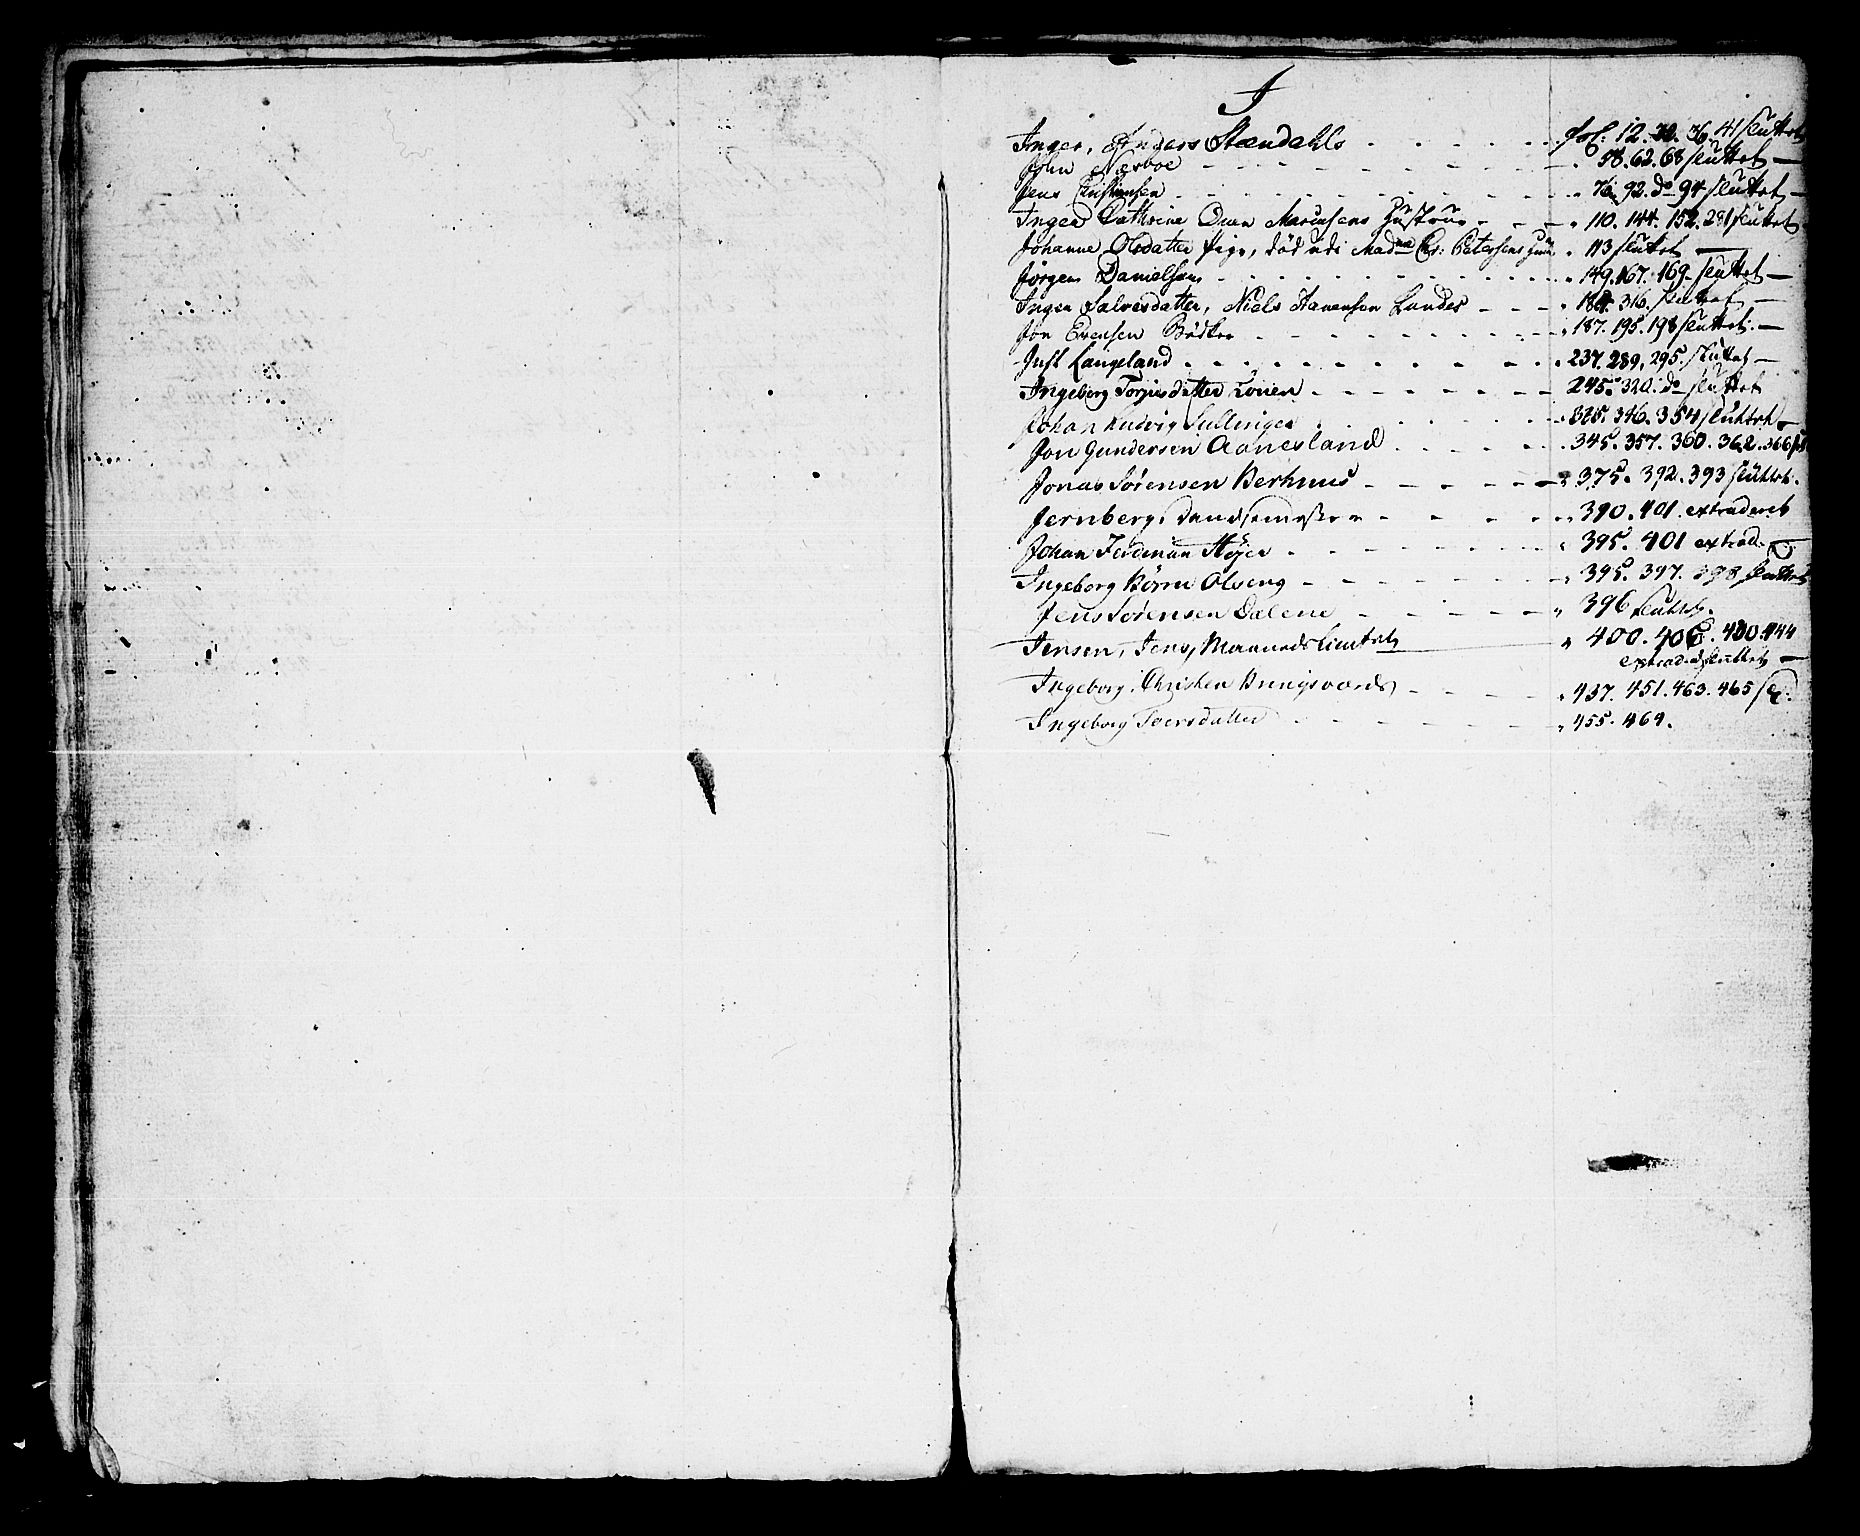 I
Inger, Anders Stændahls - - - fol. 12. 32. 36. 41 sluttet
John Nærboe - - - " 58. 62. 68 sluttet —
Jens Christensen - - - " 76. 92. do 94 sluttet —
Inger Cathrine Marcusens Hustrue - - " 110. 144. 152. 281 sluttet
Johanne Olsdatter Pige, død udi Madme Petersens " 113 sluttet —
Jørgen Danielsen - - - " 149. 167. 169. sluttet —
Inger Salvesdatter, Niels Lundes - - - " 184. 316. sluttet —
Jon Evensen Bødker - - - " 187. 195. 198 sluttet. —
Just Langeland - - - 237. 289. 295. sluttet —
Ingeborg Torjusdatter - - - 245. 320. do sluttet
Johan Ludvig - - - " 325. 346. 354 sluttet —
Jon Gundersen Aanesland - - - . 345. 357. 360. 362. 366
Jonas Sørensen Berhuus - - - " 375. 392. 393 sluttet.
Jernberg, - - - " 390. 401. extraderet
Johan Ferdinan Højer - - - " 395. 401 extrad. —
Ingeborg Børre Olsens - - - " 395. 397. 398 sluttet
Jens Sørensen Dalene - - - " 396 sluttet.
Jensen, Jens, " 400. 406. 444
extraderet sluttet —
Ingeborg, Christen Bringsværds - - - " 437. 451. 463. 465
Ingeborg Toersdatter - - - " 455. 464.